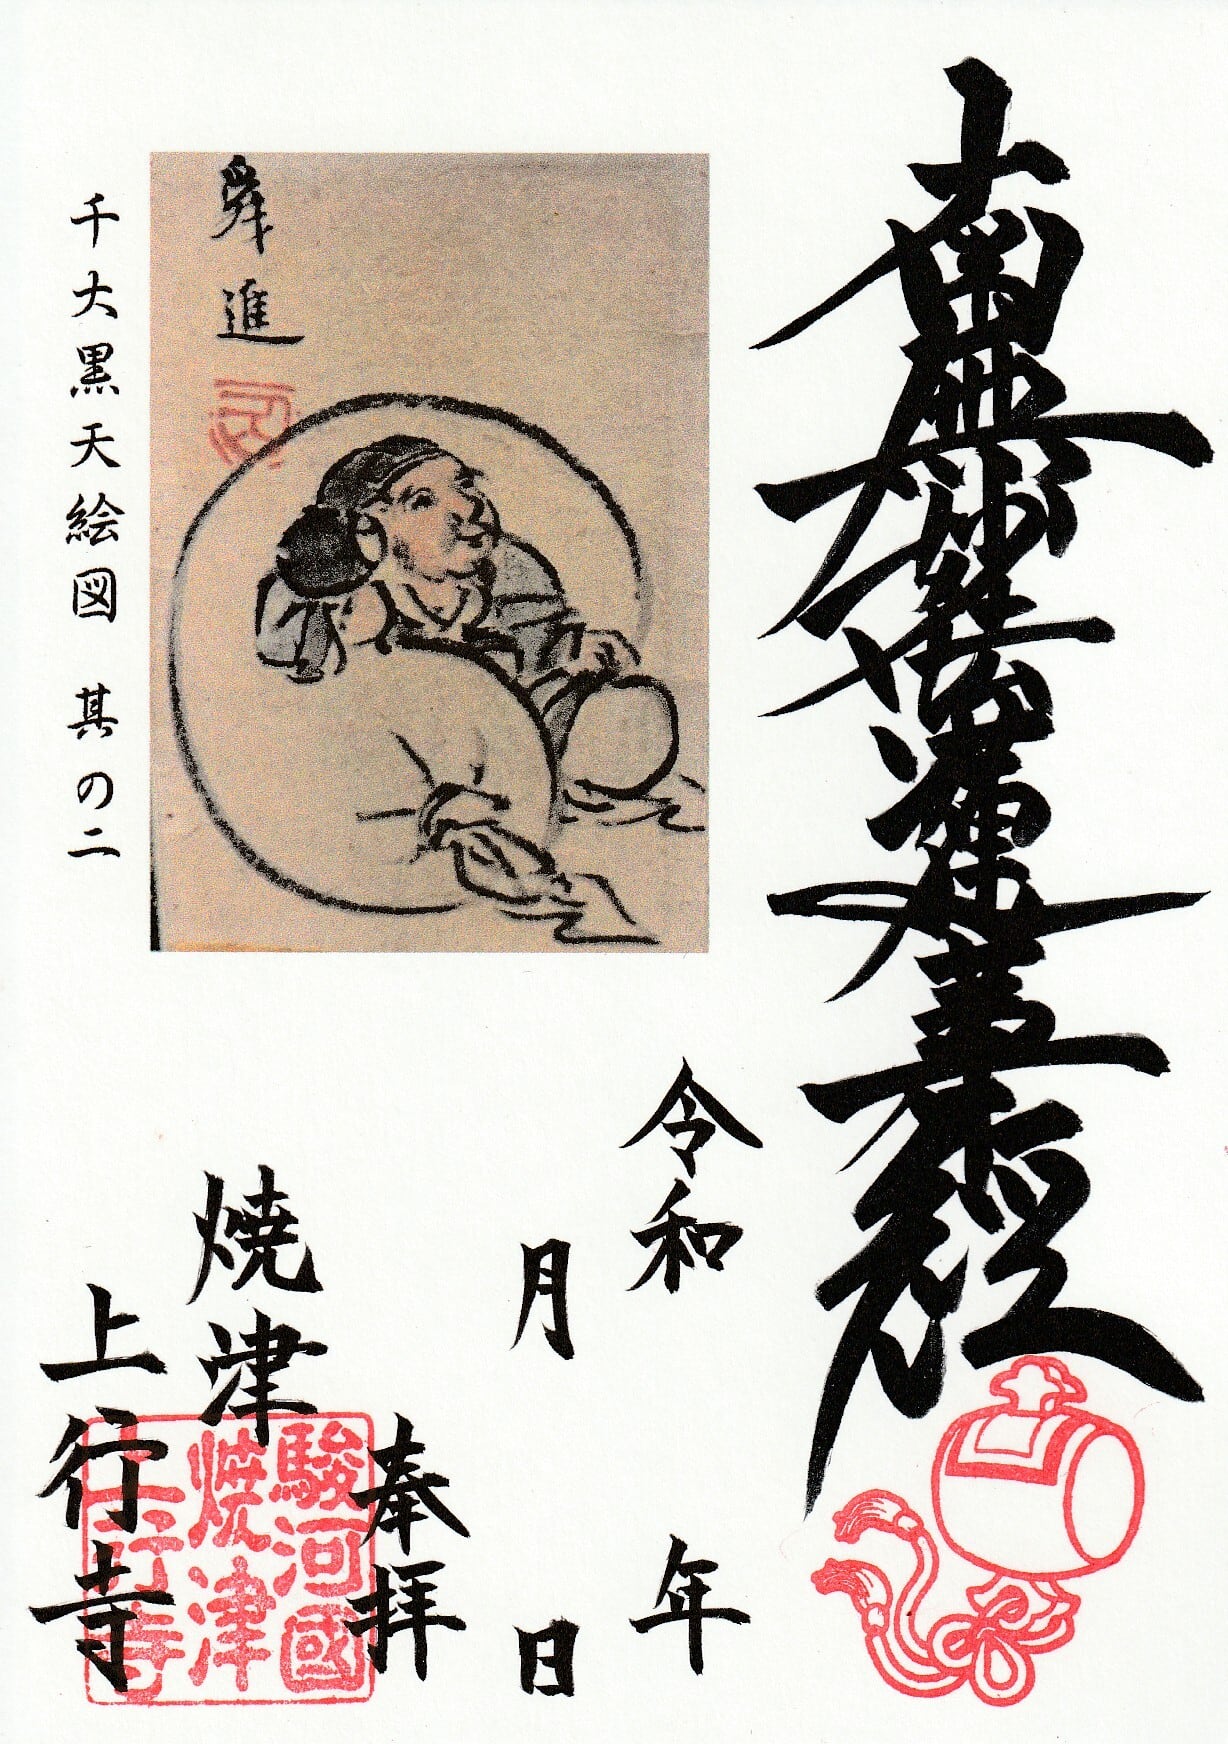 南無妙法蓮華経
令和 年
月 日
奉拝
焼津
上行寺
駿河國
焼津
上行寺
舜進
千大黒天絵図 其の二